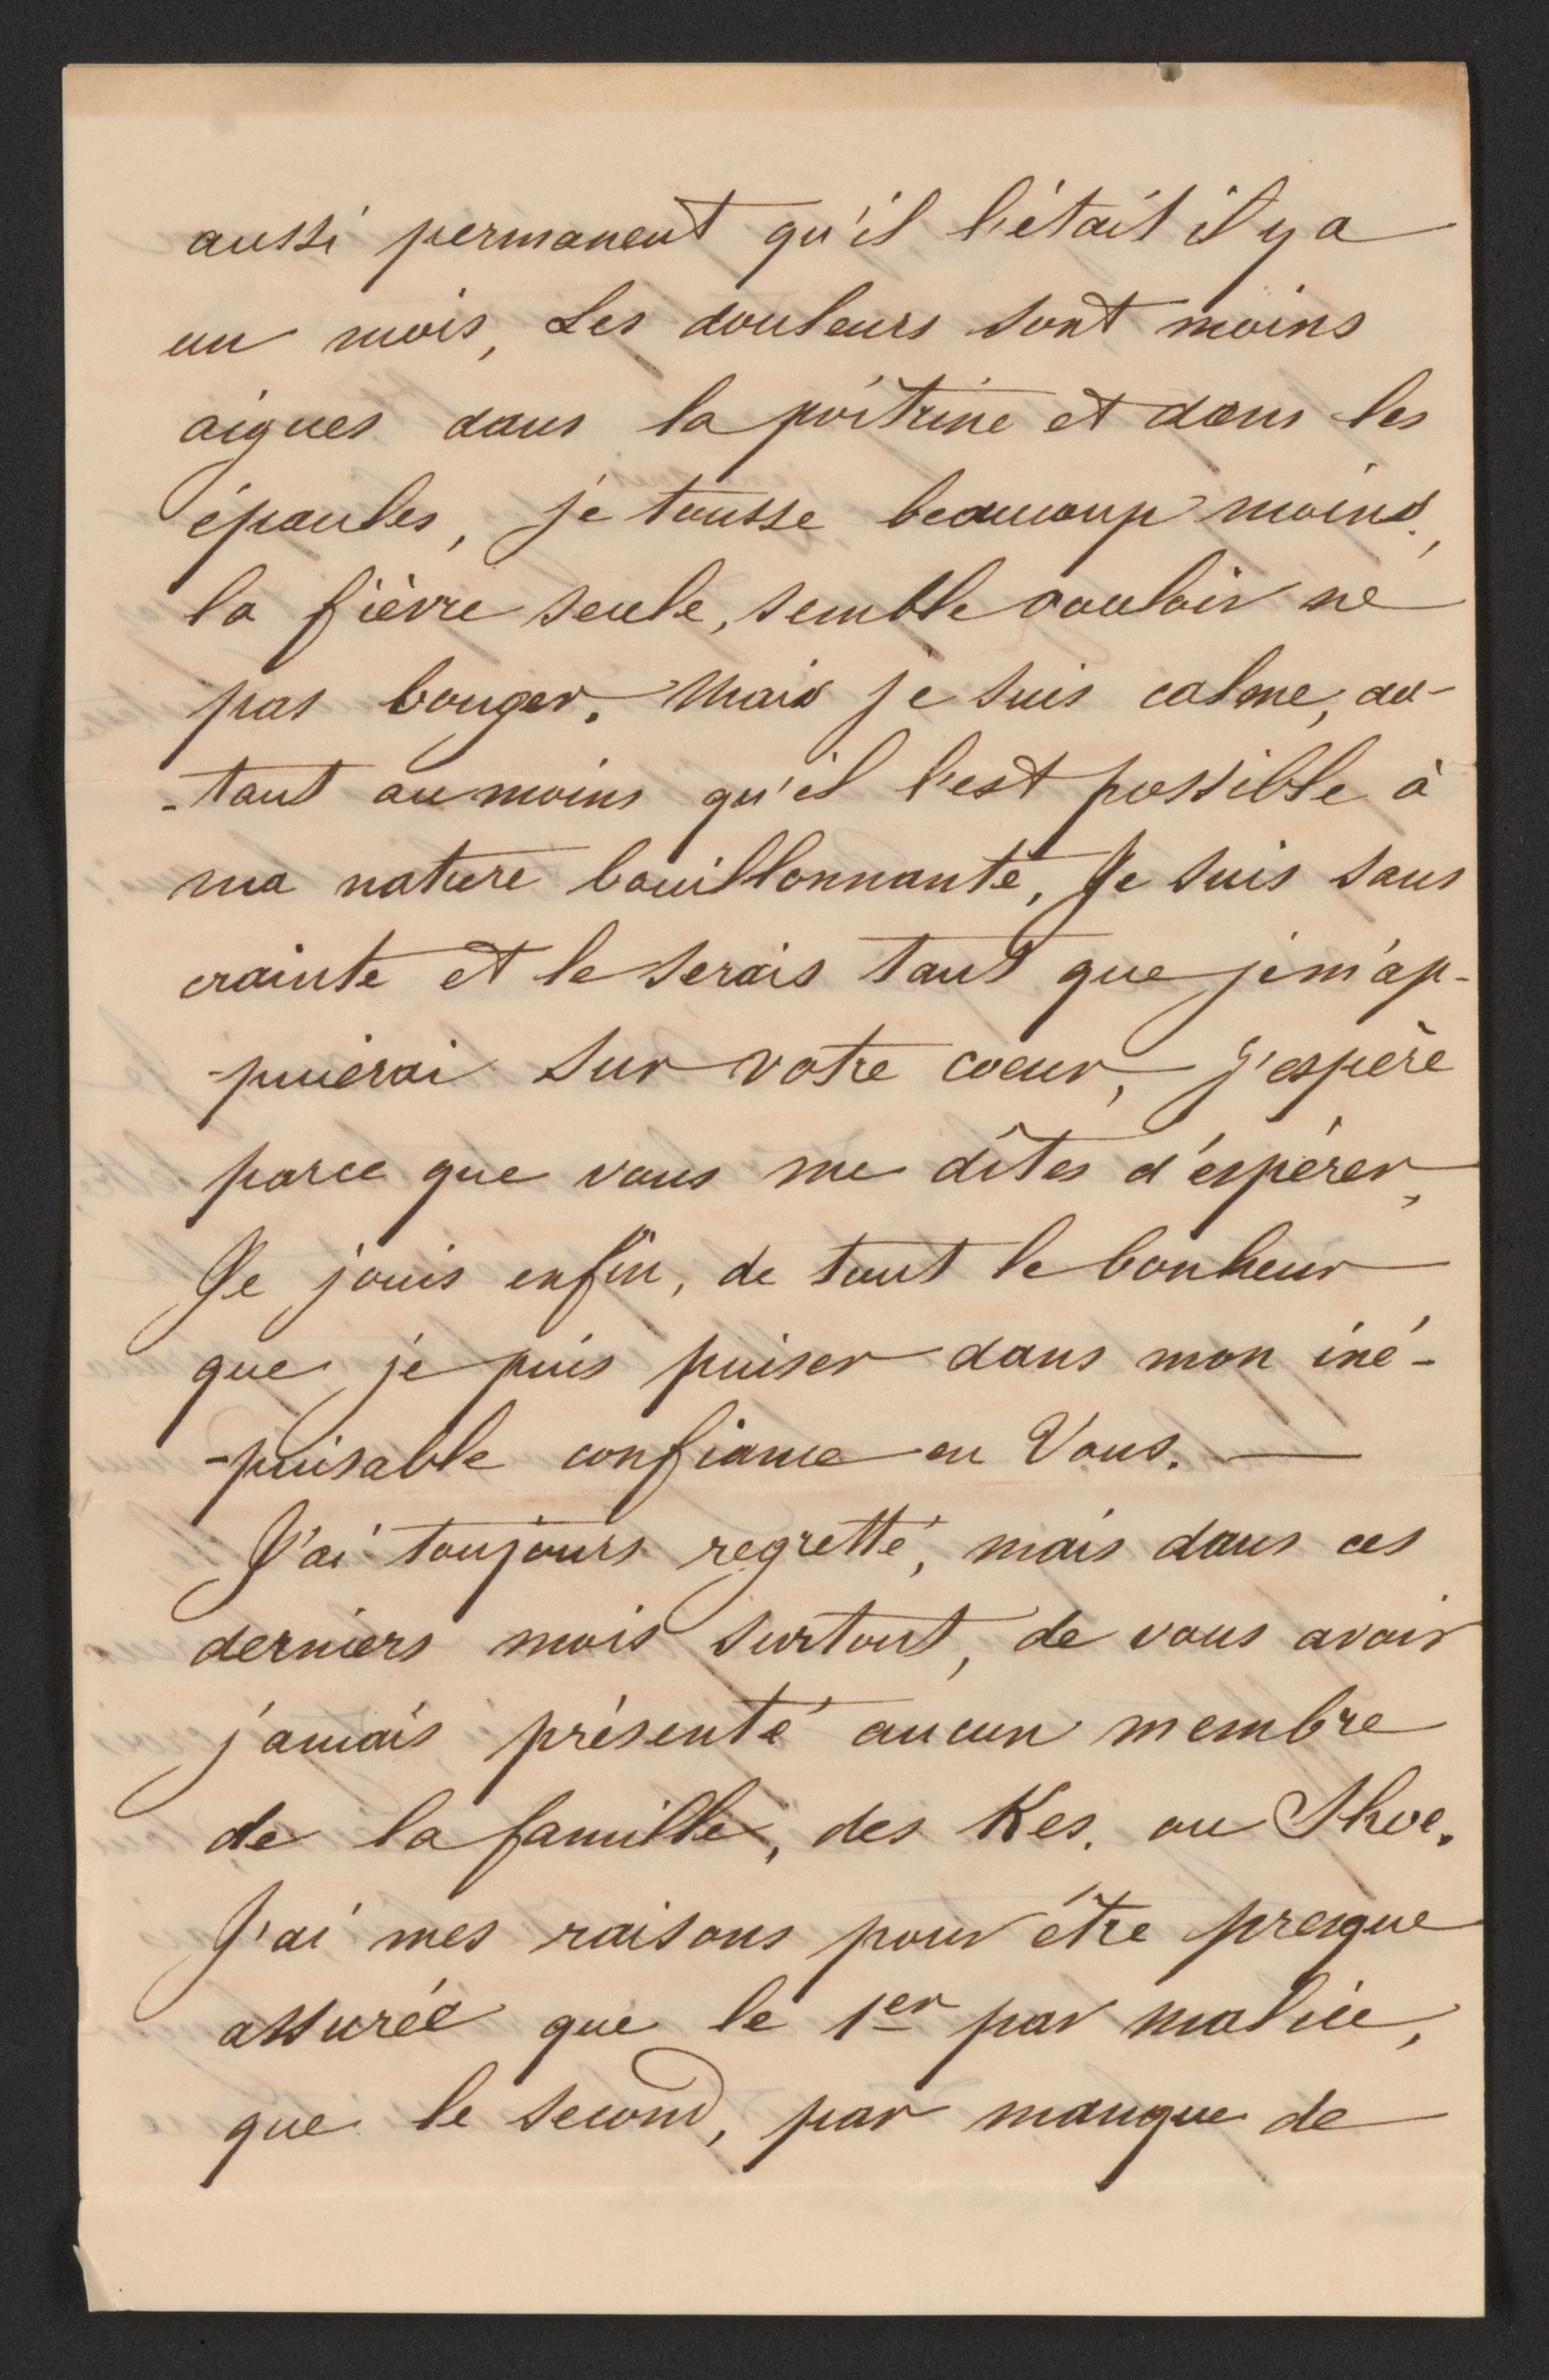 aussi permanent qu'il l'était il y a
un mois, Les douleurs sont moins
aigues dans la poitrine et dans les
épaules, je tousse beaucoup moins,
la fièvre seule, semble vouloir ne
pas bouger. Mais je suis calme, au-
-tant au moins qu'il l'est possible à
ma nature bouillonnante, Je suis sans
crainte et le serais tant que je m'ap-
-puierai sur votre coeur, J'espère
parce que vous me dîtes d'espérer,
Je jouis enfin, de tout le bonheur
que je puis puiser dans mon iné-
-puisable confiance en Vous. —
J'ai toujours regretté, mais dans ces
derniers mois surtout, de vous avoir
jamais présenté aucun membre
de la famille, des Kes. ou
J'ai mes raisons pour être presque
assurée que le 1er par malice,
que le second, par manque de